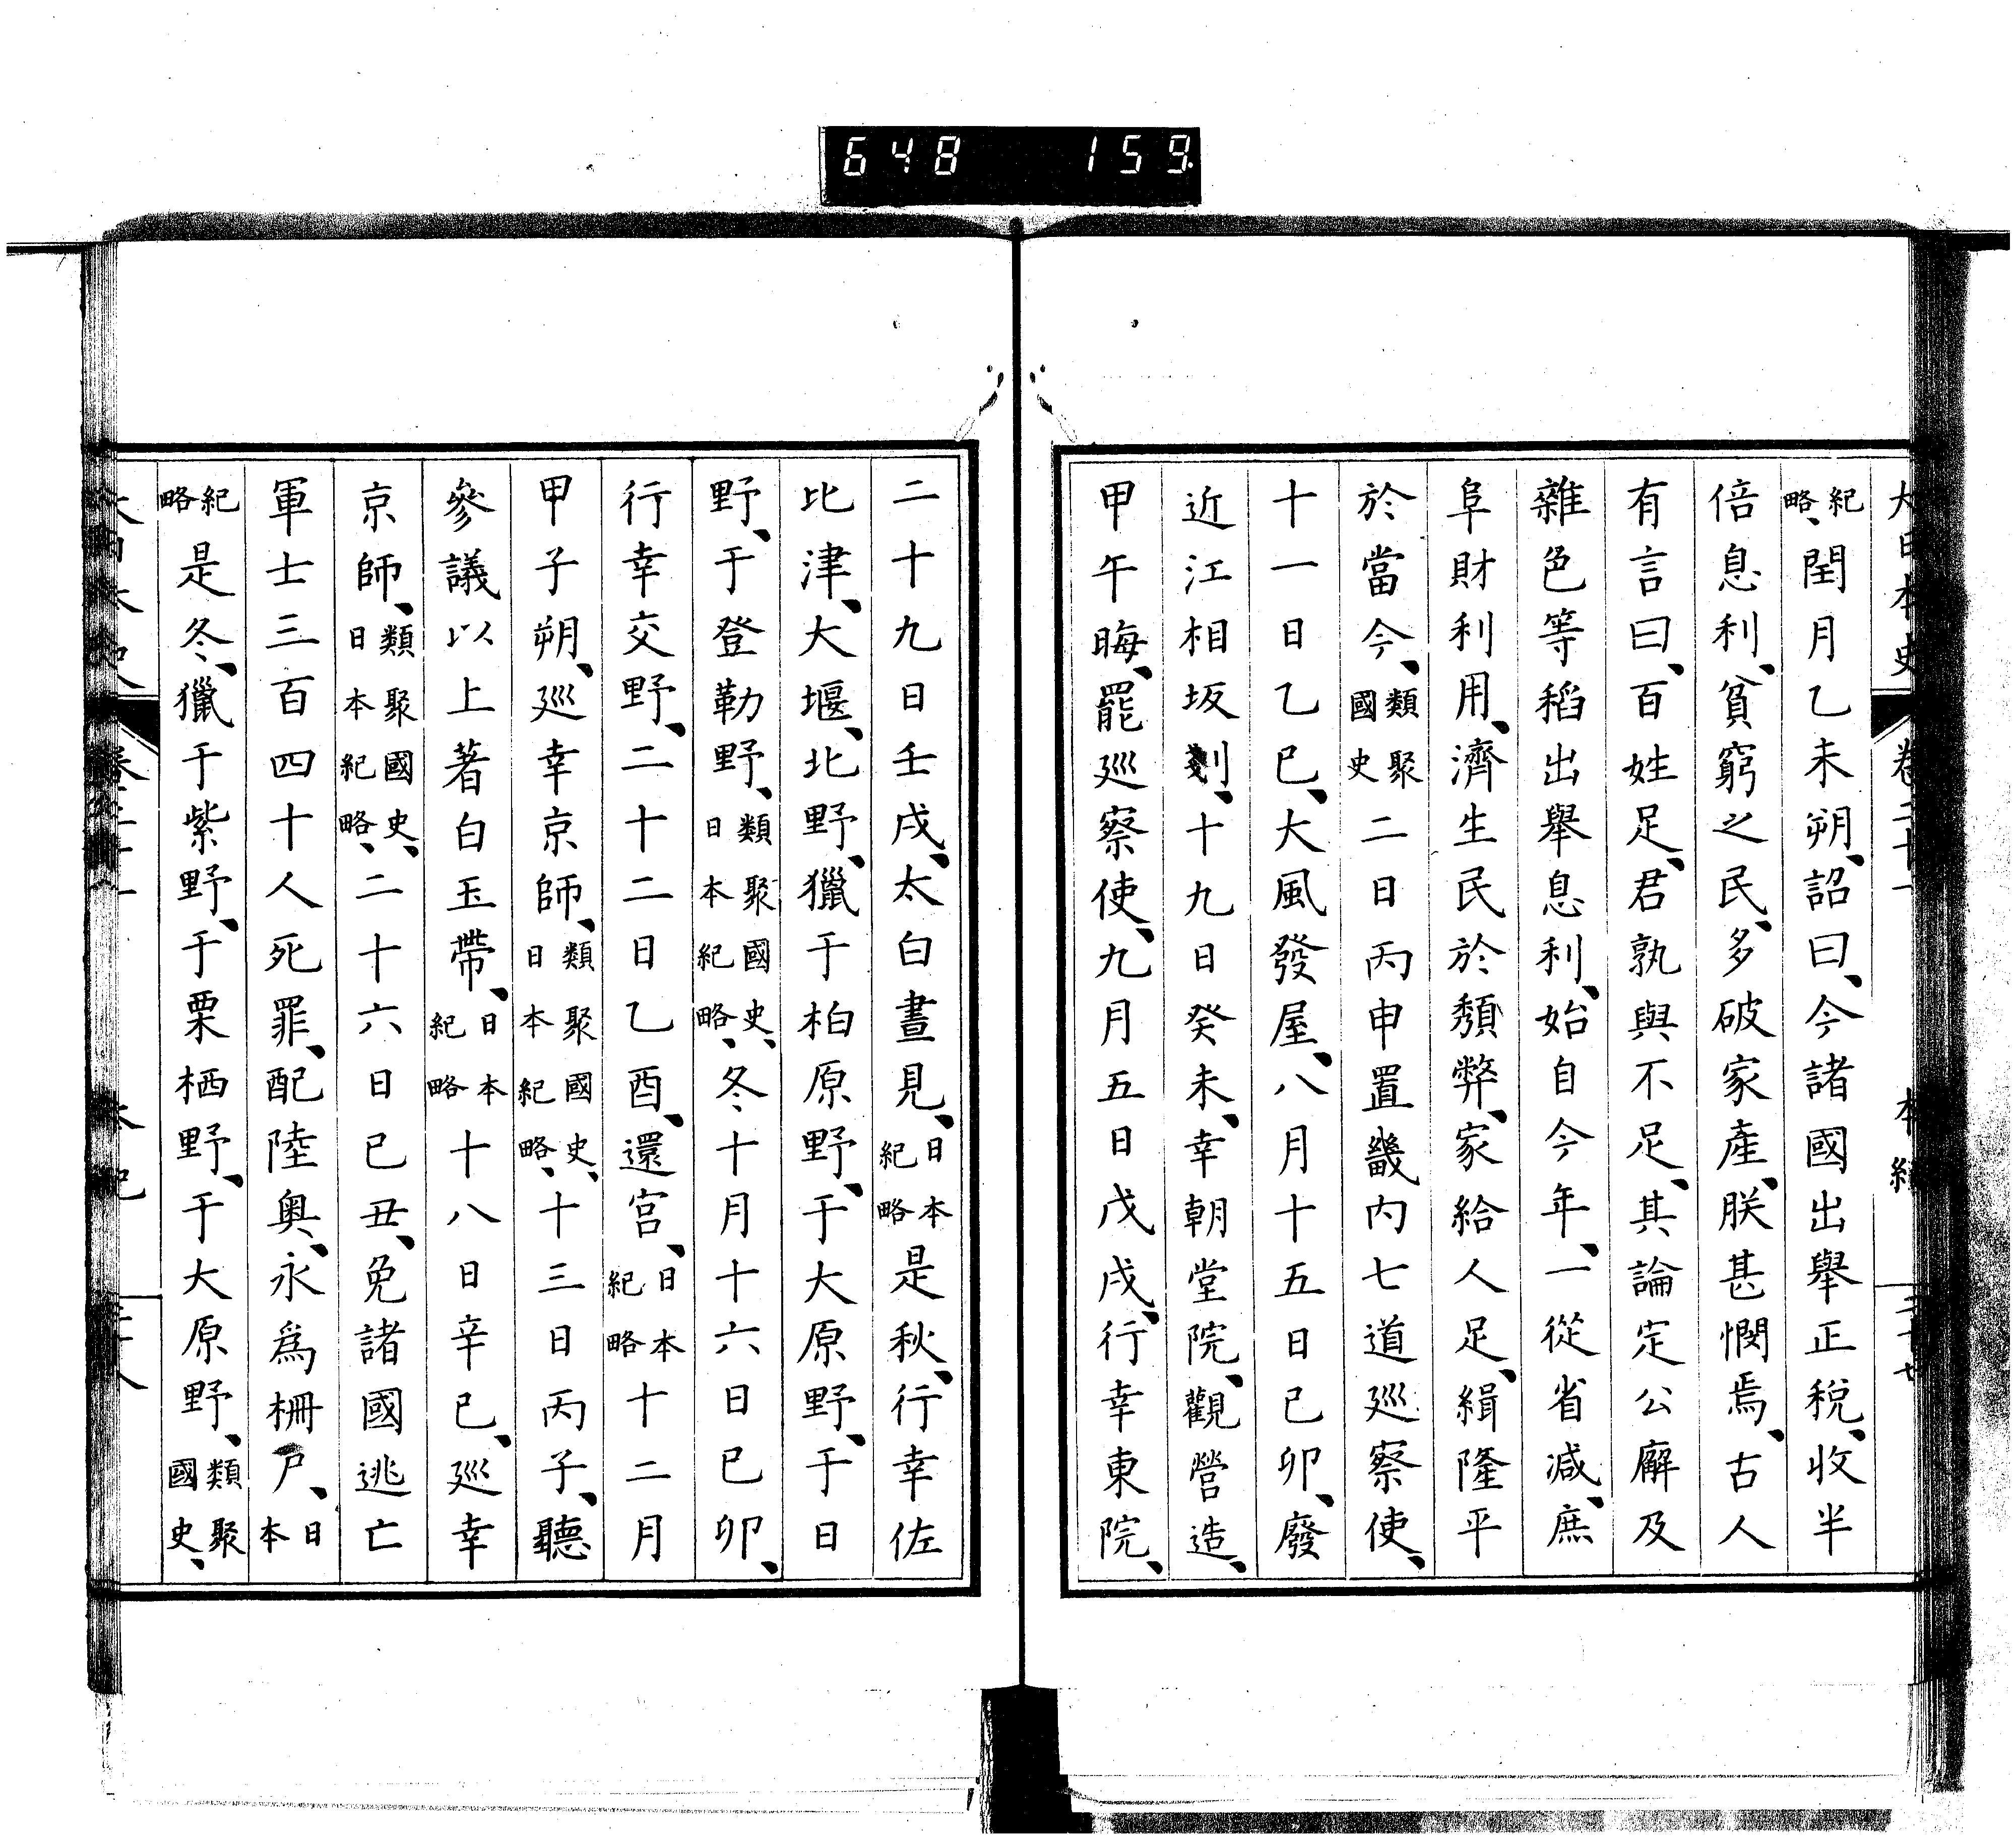 648 159
大日本史 卷二十一 本紀 二十七
紀略、閏月乙未朔、詔曰、今諸國出舉正稅、收半
倍息利、貧窮之民、多破家產、朕甚憫焉、古人
有言曰、百姓足、君孰與不足、其論定公廨及
雜色等稻出舉息利、始自今年、一從省減、庶
阜財利用、濟生民於頹弊、家給人足、緝隆平
於當今、類聚國史二日丙申置畿內七道巡察使、
十一日乙巳、大風發屋、八月十五日己卯、廢
近江相坂剗、十九日癸未、幸朝堂院、觀營造、
甲午晦、罷巡察使、九月五日戊戌、行幸東院、
二十九日壬戌、太白晝見、日本紀略是秋、行幸佐
比津、大堰、北野、獵于柏原野、于大原野、于日
野、于登勒野、類聚國史、日本紀略、冬十月十六日己卯、
行幸交野、二十二日乙酉、還宮、日本紀略十二月
甲子朔、巡幸京師、類聚國史、日本紀略、十三日丙子、聽
參議以上著白玉帶、日本紀略十八日辛巳、巡幸
京師、類聚國史、日本紀略、二十六日己丑、免諸國逃亡
軍士三百四十人死罪、配陸奥、永爲柵戶、日本
紀略是冬、獵于紫野、于栗栖野、于大原野、類聚國史、